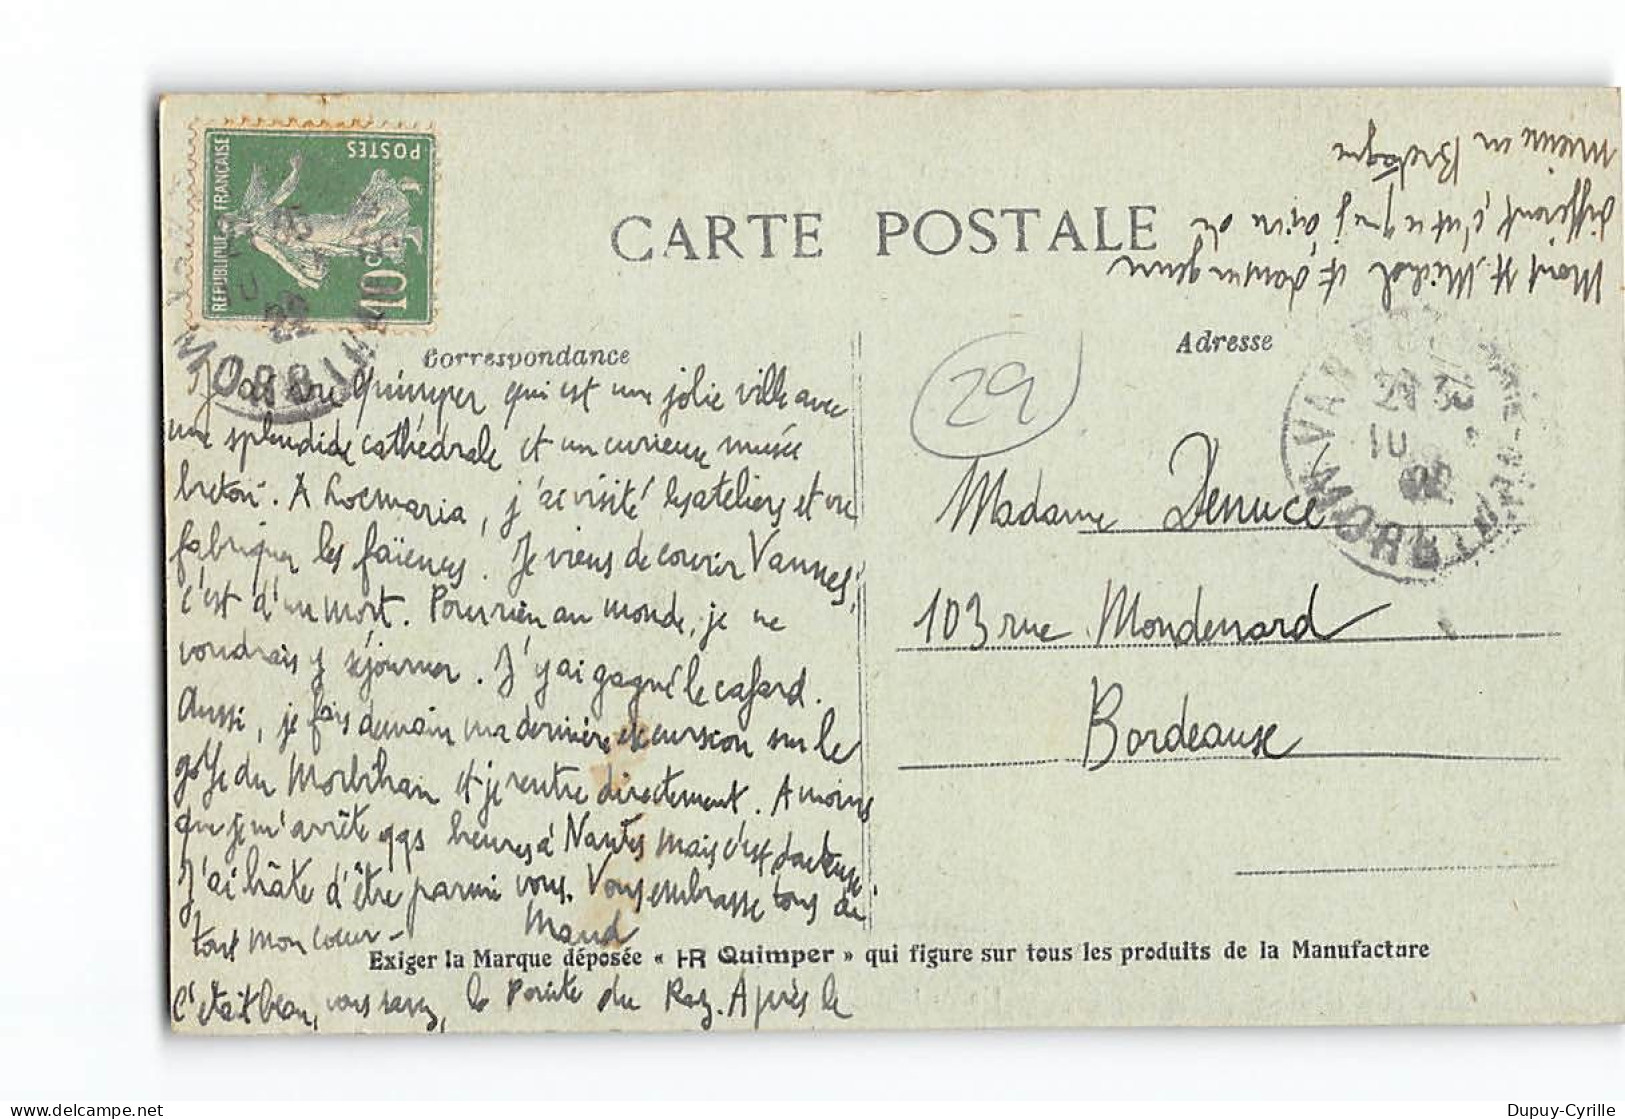 CARTE POSTALE
Correspondance
Adresse
RÉPUBLIQUE FRANÇAISE
POSTES
10 c
MORBIHAN
29
J'ai vu Quimper qui est une jolie ville avec
une splendide cathédrale et un curieux musée
breton. A Locmaria, j'ai visité les ateliers et vu
fabriquer les faïences. Je viens de courir Vannes,
c'est d'un mort. Pour rien au monde, je ne
voudrais y séjourner. J'y ai gagné le cafard.
Aussi, je fais demain ma dernière excursion sur le
golfe du Morbihan et je rentre directement. A moins
que je m'arrête qqs heures à Nantes mais c'est douteux.
J'ai hâte d'être parmi vous. Vous embrasse tous de
tout mon coeur -
Maud
c'était beau, vous savez, la Pointe du Raz. Après le
Mont St. Michel et dans un genre
différent, c'est ce que j'ai vu de
mieux en Bretagne
Madame Denucé
103 rue Mondenard
Bordeaux
VANNES
21 30
10
22
MORBIHAN
Exiger la Marque déposée « HR Quimper » qui figure sur tous les produits de la Manufacture
Dupuy-Cyrille